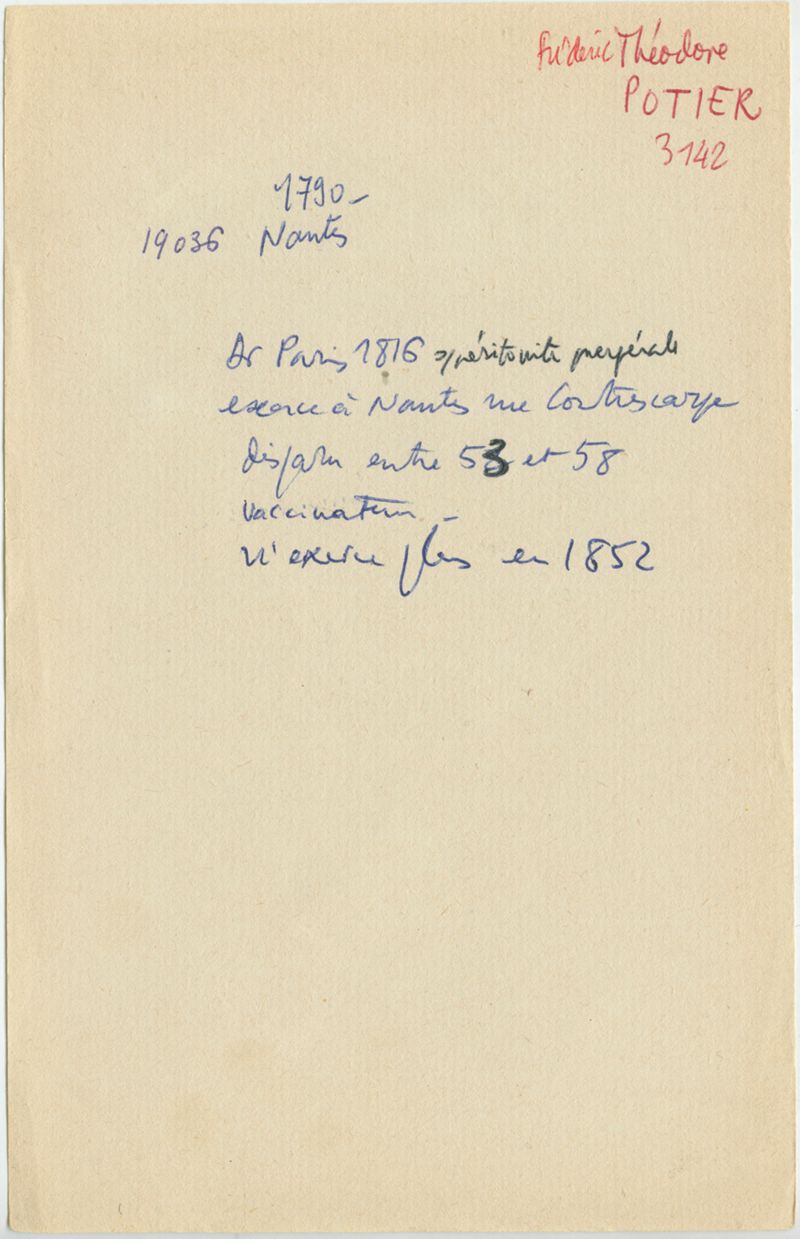 Frédéric Théodore
POTIER
3142
1790-
19036 Nantes
Dr Paris 1816 péritonite puerpérale
exerce à Nantes rue Contrescarpe
disparu entre 53 et 58
vaccinateur -
n'exerce plus en 1852